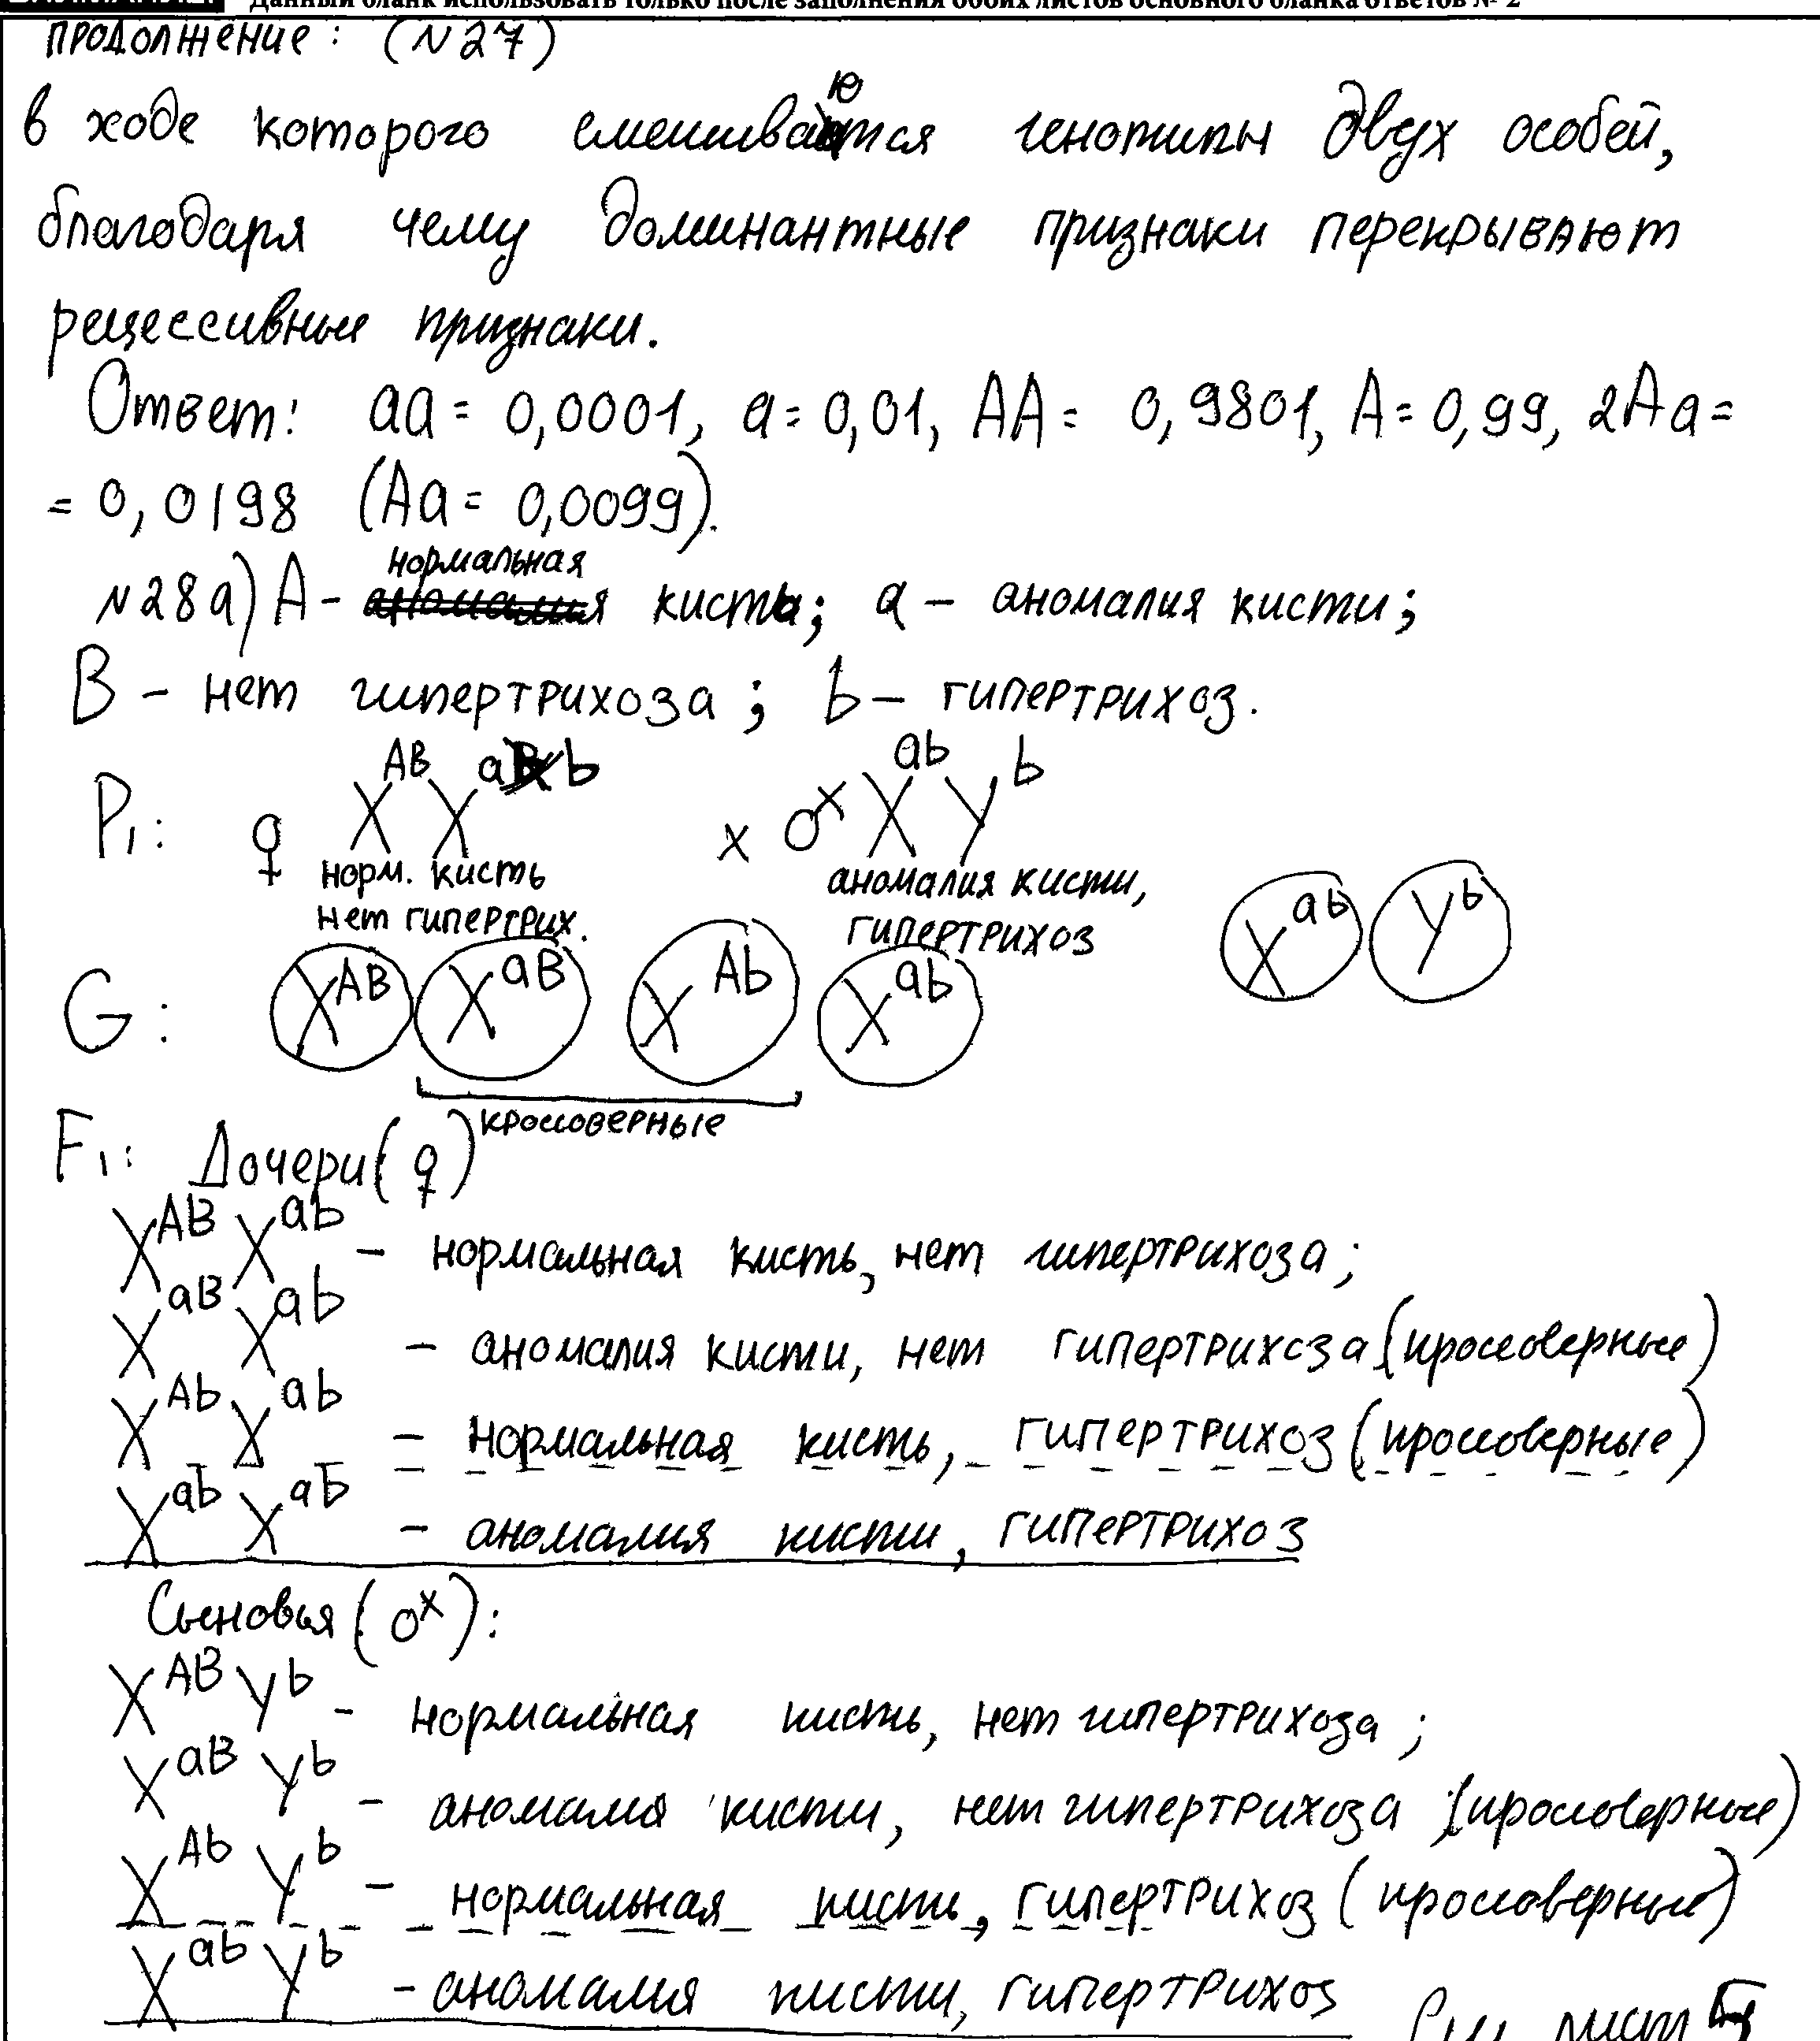 Данный бланк использовать только после заполнения обоих листов основного бланка ответов № 2
продолжение: (N27)
в ходе которого смешиваются генотипы двух особей,
благодаря чему доминантные признаки перекрывают
рецессивные признаки.
Ответ: aa = 0,0001, a = 0,01, AA = 0,9801, A = 0,99, 2Aa =
= 0,0198 (Aa = 0,0099).
N28 a) A - нормальная кисть; a - аномалия кисти;
B - нет гипертрихоза; b - гипертрихоз.
P₁: ♀ Xᴬᴮ Xᵃᵇ x ♂ Xᵃᵇ Yᵇ
норм. кисть аномалия кисти,
нет гипертрих. гипертрихоз
G: Xᴬᴮ XᵃB XᴬᵇXᵃᵇ Xᵃᵇ Yᵇ
кроссоверные
F₁: Дочери (♀)
Xᴬᴮ Xᵃᵇ - нормальная кисть, нет гипертрихоза;
Xᵃᴮ Xᵃᵇ - аномалия кисти, нет гипертрихоза (кроссоверные)
Xᴬᵇ Xᵃᵇ - нормальная кисть, гипертрихоз (кроссоверные)
Xᵃᵇ Xᵃᵇ - аномалия кисти, гипертрихоз
Сыновья (♂):
Xᴬᴮ Yᵇ - нормальная кисть, нет гипертрихоза;
Xᵃᴮ Yᵇ - аномалия кисти, нет гипертрихоза (кроссоверные)
Xᴬᵇ Yᵇ - нормальная кисть, гипертрихоз (кроссоверные)
Xᵃᵇ Yᵇ - аномалия кисти, гипертрихоз